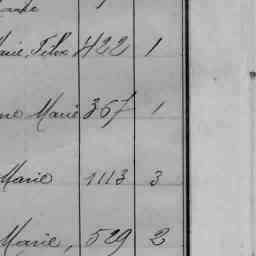 Marie, Félix 422 1
ne Marie 367 1
Marie 1113 3
Marie, 529 2